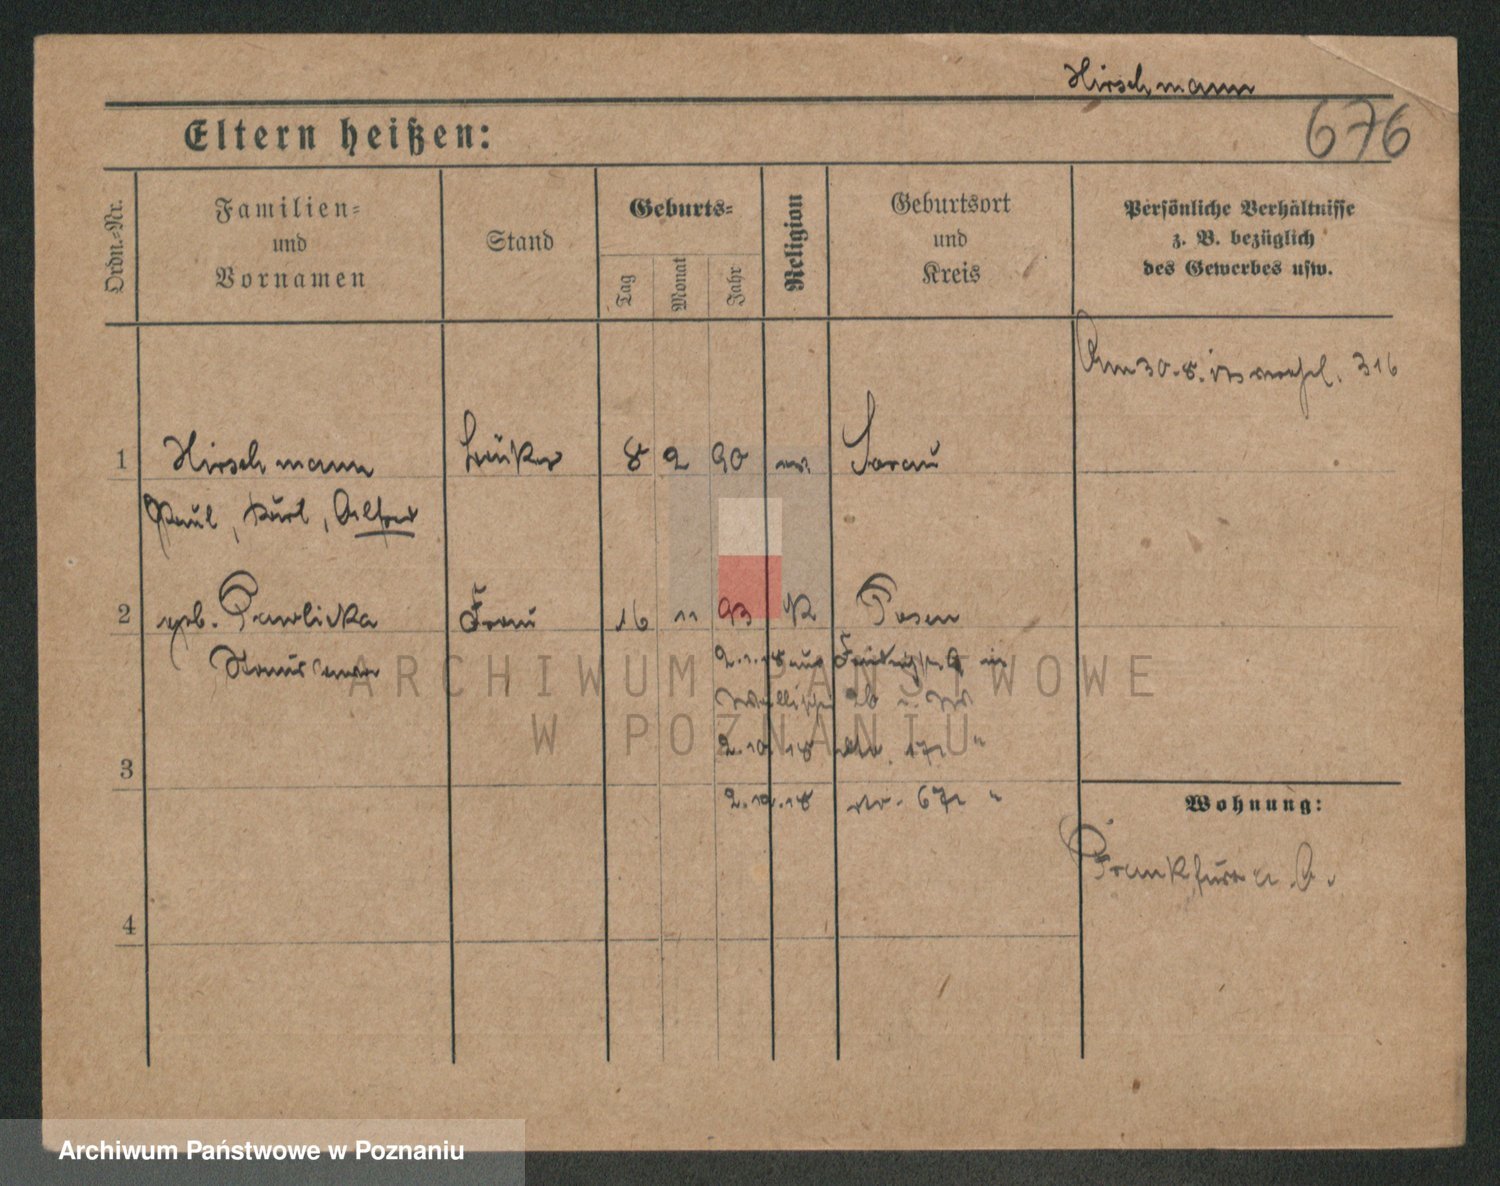 Hirschmann
676
Eltern heißen:
Ordn.-Nr.
Familien-
und
Vornamen
Stand
Geburts-
Tag
Monat
Jahr
Religion
Geburtsort
und
Kreis
Persönliche Verhältnisse
z. B. bezüglich
des Gewerbes usw.
Am 30.8. 316
1 Hirschmann 8 2 90 ev. Sorau
Paul, Kurt, Alfred
2 geb. Pawlicka Frau 16 11 93 K Posen
2.1.18 aus in
26
2.10.18
3
2.10.18 67
Wohnung:
Frankfurt a. O.
4
ARCHIWUM PAŃSTWOWE
W POZNANIU
Archiwum Państwowe w Poznaniu